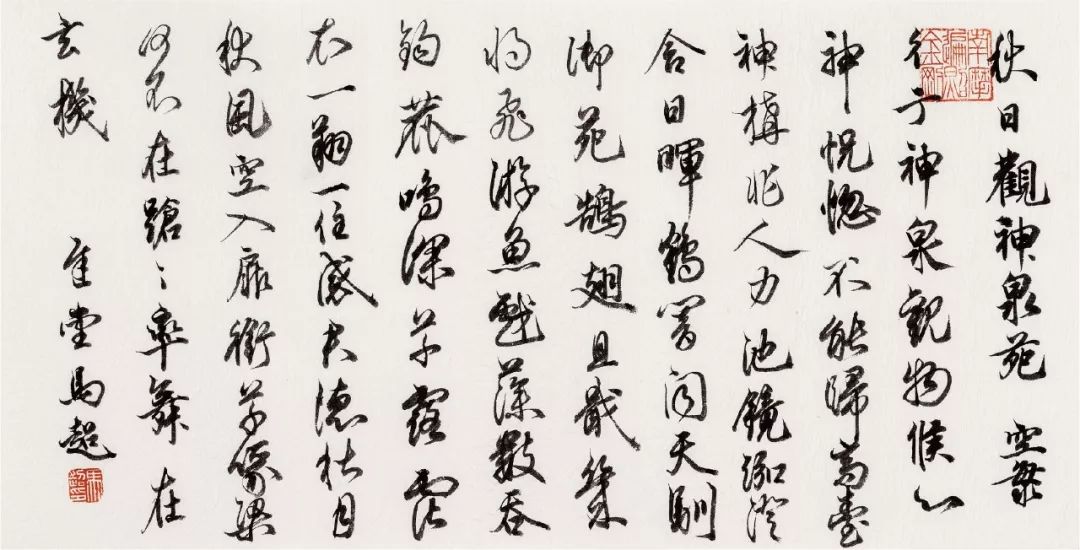 秋日觀神泉苑 空海
彳亍神泉觀物候心
神怳惚不能歸高臺
神構非人力池鏡泓澄
含日暉鶴響聞天馴
御苑鵠翅且戢幾
將飛游魚戲藻數吞
鉤麀鳴深草露霑
衣一翔一住感君德秋月
秋風空入扉銜草啄粱
何不在蹌〻率舞在
玄機 堂馬超
南無遍照金剛